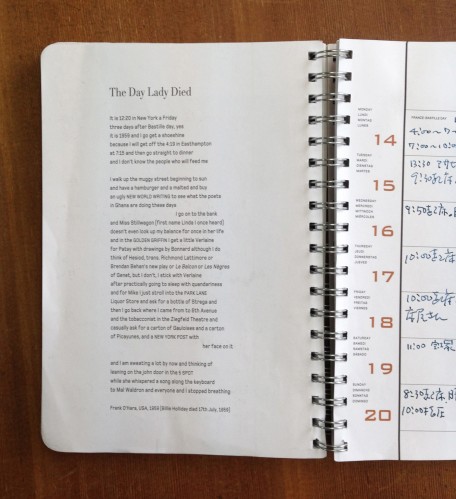 The Day Lady Died
It is 12:20 in New York a Friday
three days after Bastille day, yes
it is 1959 and I go get a shoeshine
because I will get off the 4:19 in Easthampton
at 7:15 and then go straight to dinner
and I don't know the people who will feed me
I walk up the muggy street beginning to sun
and have a hamburger and a malted and buy
an ugly NEW WORLD WRITING to see what the poets
in Ghana are doing these days
I go on to the bank
and Miss Stillwagon (first name Linda I once heard)
doesn't even look up my balance for once in her life
and in the GOLDEN GRIFFIN I get a little Verlaine
for Patsy with drawings by Bonnard although I do
think of Hesiod, trans. Richmond Lattimore or
Brendan Behan's new play or Le Balcon or Les Nègres
of Genet, but I don't, I stick with Verlaine
after practically going to sleep with quandariness
and for Mike I just stroll into the PARK LANE
Liquor Store and ask for a bottle of Strega and
then I go back where I came from to 6th Avenue
and the tobacconist in the Ziegfeld Theatre and
casually ask for a carton of Gauloises and a carton
of Picayunes, and a NEW YORK POST with
her face on it
and I am sweating a lot by now and thinking of
leaning on the john door in the 5 SPOT
while she whispered a song along the keyboard
to Mal Waldron and everyone and I stopped breathing
Frank O'Hara, USA, 1959 (Billie Holiday died 17th July, 1959)
MONDAY
LUNDI
MONTAG
LUNES
14
TUESDAY
MARDI
DIENSTAG
MARTES
15
WEDNESDAY
MERCREDI
MITTWOCH
MIÉRCOLES
16
9:50
THURSDAY
JEUDI
DONNERSTAG
JUEVES
17
10:00
FRIDAY
VENDREDI
FREITAG
VIERNES
18
10:00
SATURDAY
SAMEDI
SAMSTAG
SÁBADO
19
11:00
SUNDAY
DIMANCHE
SONNTAG
DOMINGO
20
8:30
10:00